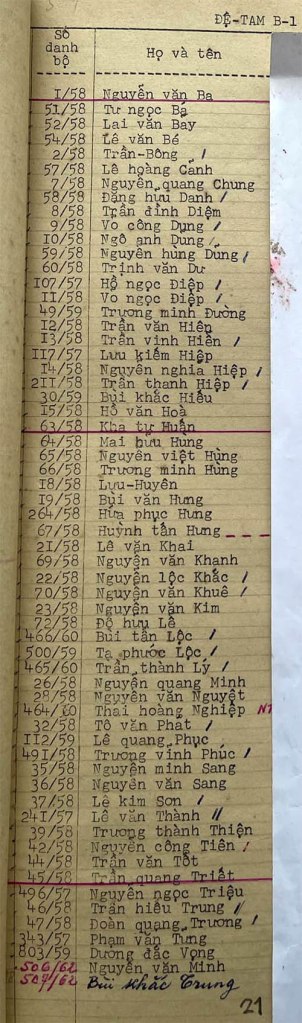 ĐỆ-TAM B-1
Số danh bộ
Họ và tên
1/58 Nguyễn văn Ba
51/58 Tư ngọc Bá
52/58 Lai văn Bay
54/58 Lê văn Bé
2/58 Trần-Bông /
57/58 Lê hoàng Cảnh
7/58 Nguyễn quang Chung
58/58 Đặng hưu Danh /
8/58 Trần đình Diệm
9/58 Vo công Dụng /
10/58 Ngô anh Dung /
59/58 Nguyễn hùng Dung /
60/58 Trịnh văn Dư
107/57 Hồ ngọc Điệp /
11/58 Vo ngọc Điệp /
49/59 Trương minh Đường
12/58 Trần văn Hiên
13/58 Trần vinh Hiển /
117/57 Lưu kiếm Hiệp
14/58 Nguyễn nghia Hiệp /
211/58 Trần thanh Hiệp /
30/59 Bùi khắc Hiếu
15/58 Hồ văn Hoà
63/58 Kha tư Huấn
64/58 Mai hưu Hùng
65/58 Nguyễn việt Hùng
66/58 Trương minh Hùng
18/58 Lưu-Huyên
19/58 Bùi văn Hưng
264/58 Hứa phục Hưng
67/58 Huỳnh tấn Hưng
21/58 Lê văn Khai
69/58 Nguyễn văn Khanh
22/58 Nguyễn lộc Khắc /
70/58 Nguyễn văn Khuê /
23/58 Nguyễn văn Kim
72/58 Đỗ hưu Lễ
466/60 Bùi tấn Lộc /
500/59 Tạ phước Lộc /
465/60 Trần thành Lý /
26/58 Nguyễn quang Minh
28/58 Nguyễn văn Nguyệt
464/60 Thai hoàng Nghiệp NT
32/58 Tô văn Phát /
112/59 Lê quang Phục
491/58 Trương vinh Phúc /
35/58 Nguyễn minh Sang
36/58 Nguyễn văn Sang
37/58 Lê kim Sơn /
241/57 Lê văn Thành //
39/58 Trương thành Thiện
42/58 Nguyễn công Tiên /
44/58 Trần văn Tốt
45/58 Trần quang Triết
496/57 Nguyễn ngọc Triệu
46/58 Trần hiếu Trung //
47/58 Đoàn quang Trương /
343/57 Phạm văn Tưng
803/59 Dương đắc Vọng
506/62 Nguyễn văn Minh
507/62 Bùi khắc Trung
21